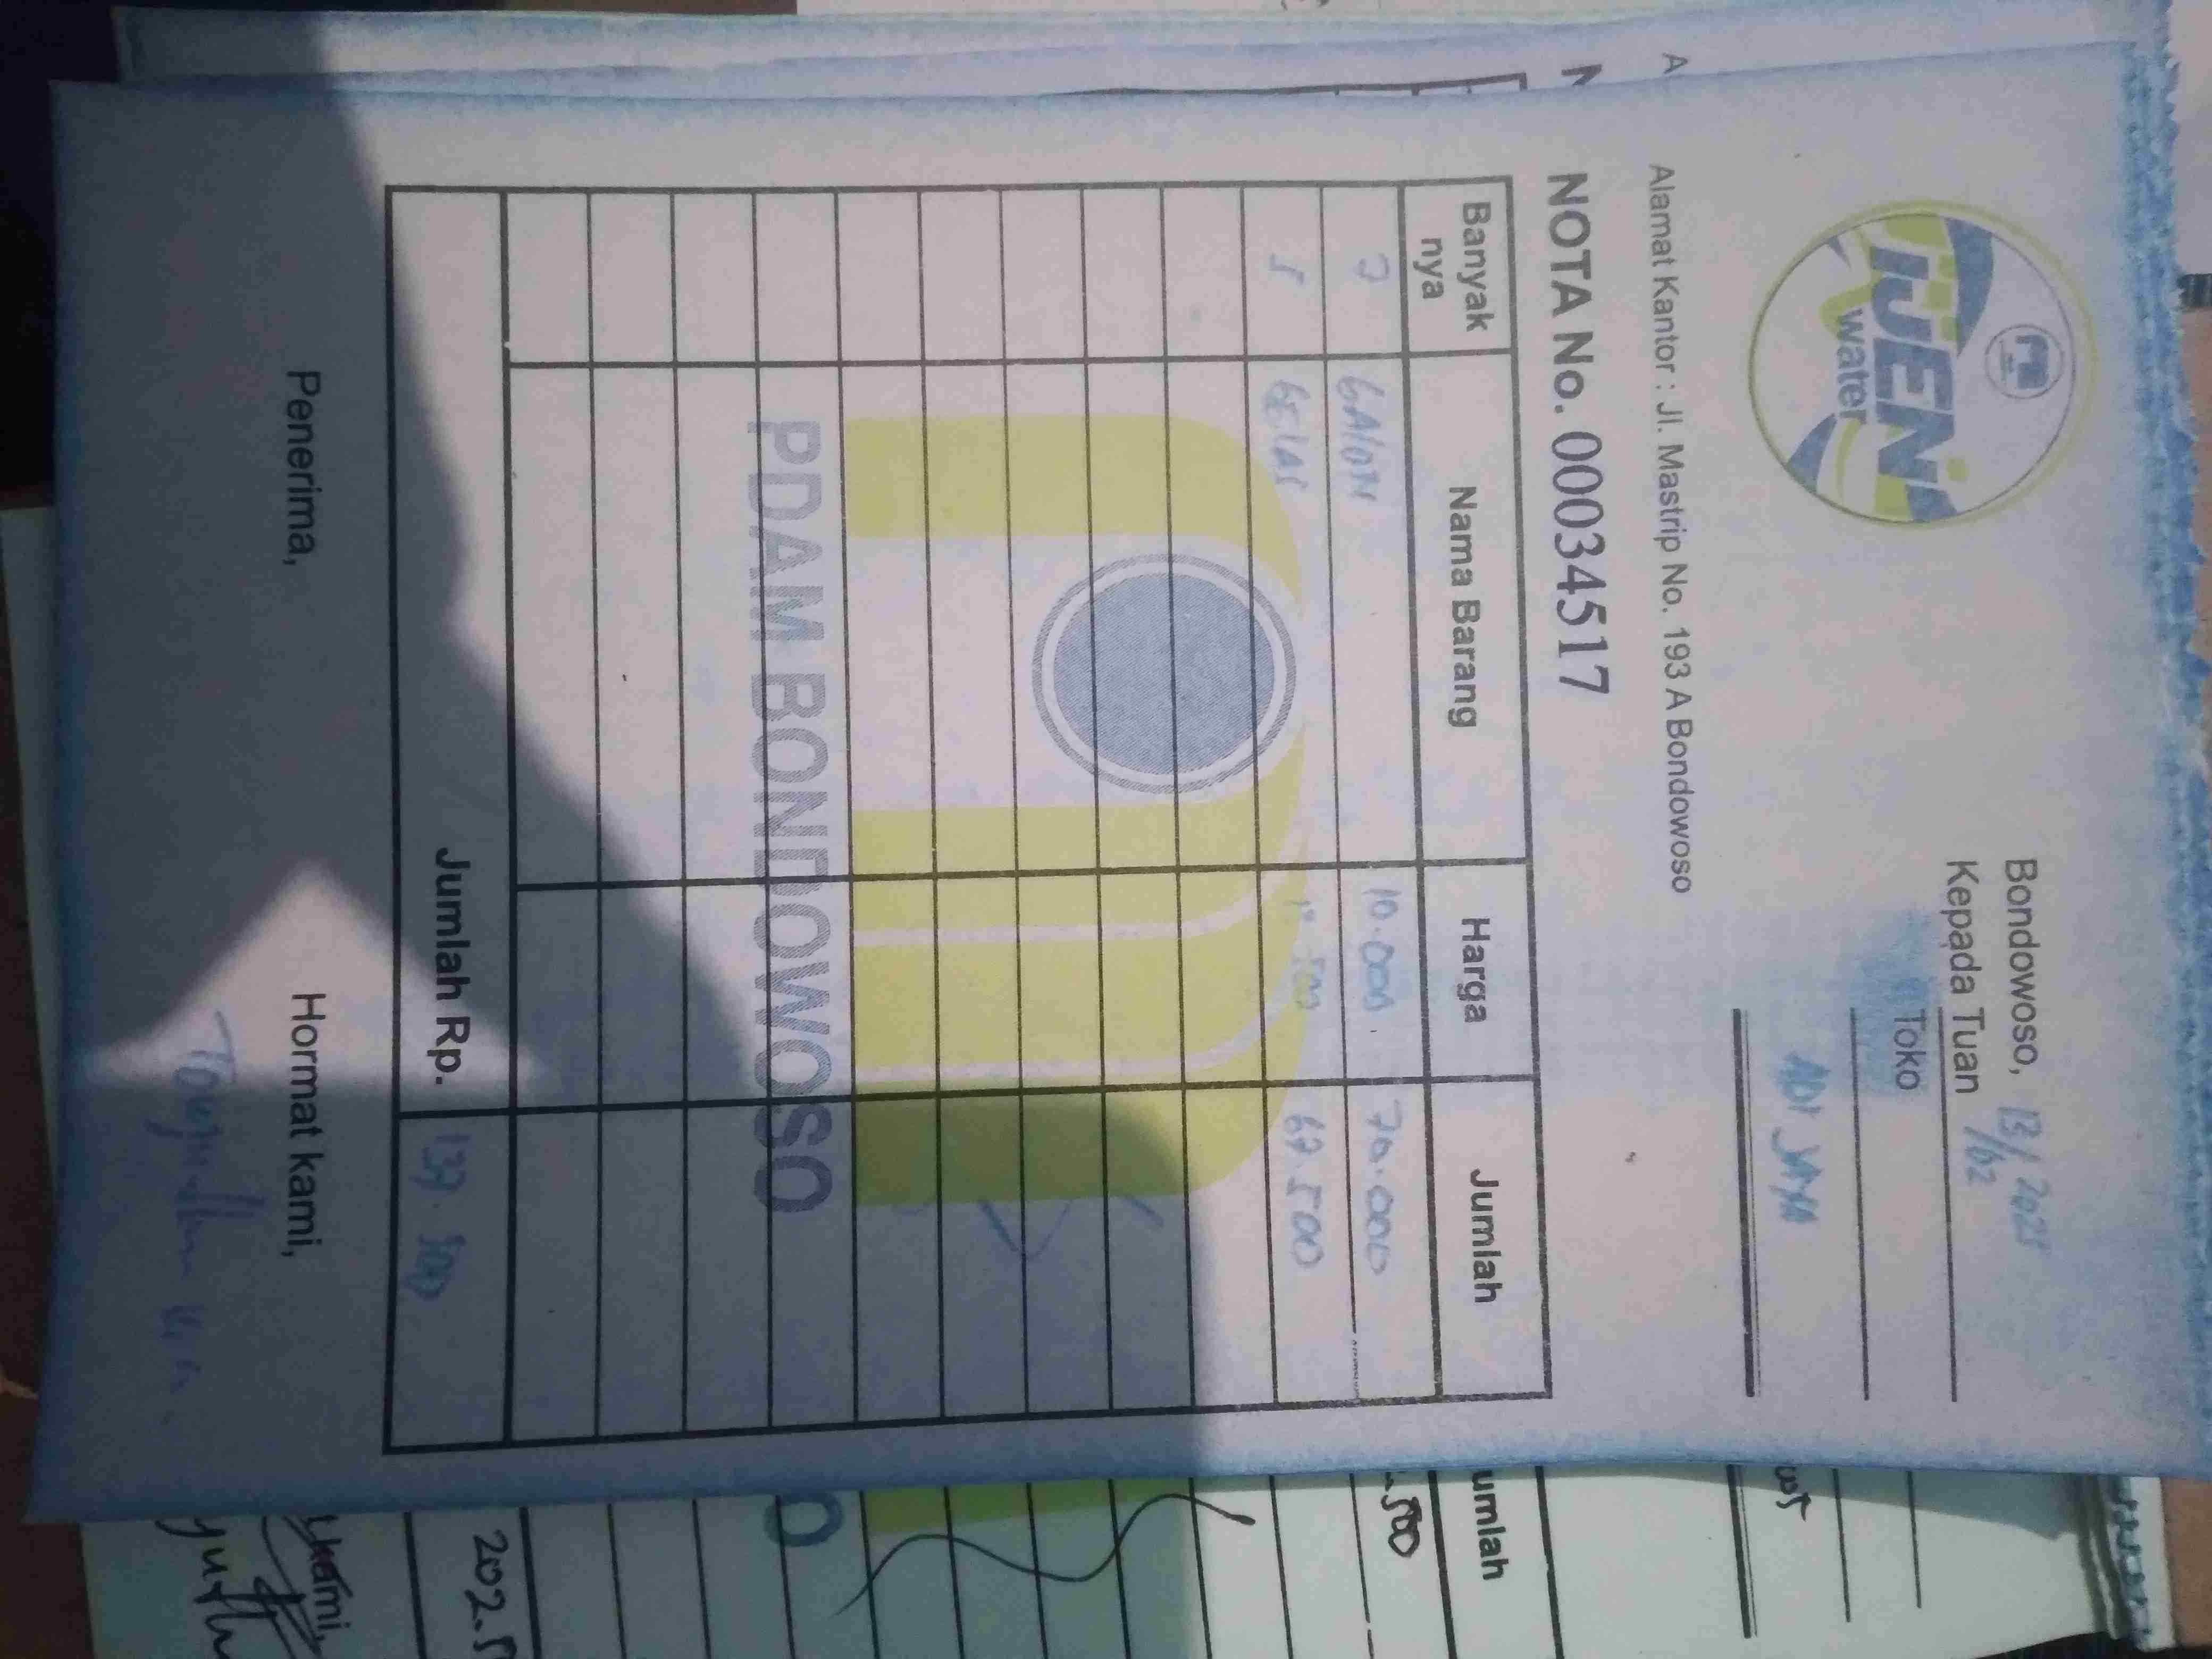 IJEN
water
Bondowoso, 13/02 2025
Kepada Tuan
Toko
ADI JAYA
Alamat Kantor : Jl. Mastrip No. 193 A Bondowoso
NOTA No. 00034517
Banyak nya Nama Barang Harga Jumlah
7 GAlON 10.000 70.000
5 GElAS 500 67.500
PDAM BONDOWOSO
Jumlah Rp. 137.500
Penerima, Hormat kami,
umlah
.500
202.5
kami,